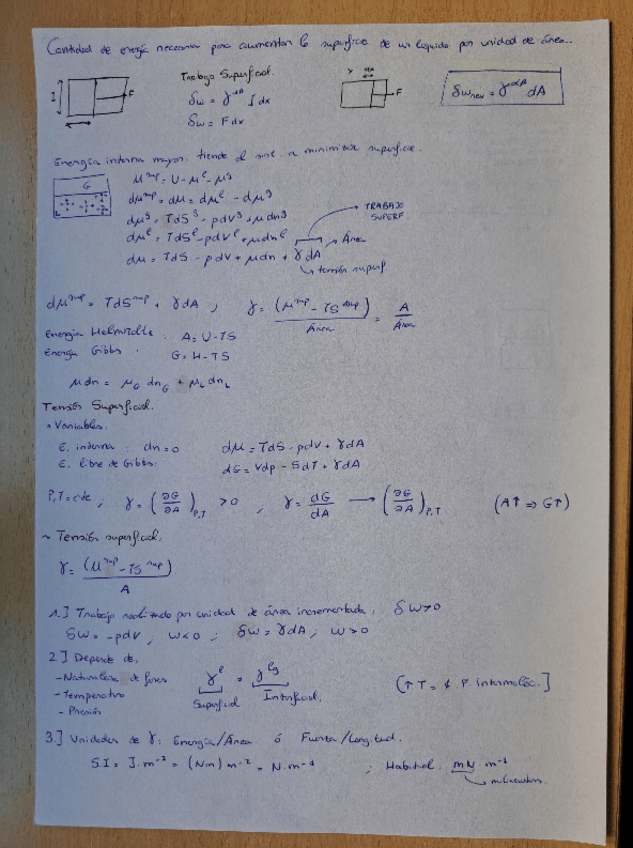 Cantidad de energía necesaria para aumentar la superficie de un líquido por unidad de área..
Trabajo Superficial.
δw = γ^αβ l dx
δw = F dx
F
F
δw_rev = γ^αβ dA
Energía interna mayor. tiende el sist. a minimizar superficie.
G
U^sup = U - U^l - U^g
dU^sup = dU = dU^l - dU^g
dU^g = TdS^g - pdV^g + μdn^g
dU^l = TdS^l - pdV^l + μdn^l
dU = TdS - pdV + μdn + γdA
TRABAJO SUPERF.
Área
tensión superf.
dU^sup = TdS^sup + γdA ; γ = (U^sup - TS^sup) / Área = A / Área
Energía Helmholtz. A = U-TS
Energía Gibbs. G = H-TS
μdn = μ_G dn_G + μ_L dn_L
Tensión Superficial.
• Variables.
E. interna : dn=0 dU = TdS - pdV + γdA
E. libre de Gibbs: dG = Vdp - SdT + γdA
P,T = cte ; γ = (∂G/∂A)_P,T > 0 , γ = dG/dA → (∂G/∂A)_P,T (A↑ ⇒ G↑)
~ Tensión superficial.
γ = (U^sup - TS^sup) / A
1.] Trabajo realizado por unidad de área incrementada. δw>0
δw = -pdV , w<0 ; δw = γdA , w>0
2.] Depende de.
- Naturaleza de fases
- Temperatura
- Presión
γ^l = γ^lg
Superficial Interfacial.
(↑T = F. Intermoléc.]
3.] Unidades de γ: Energía/Área ó Fuerza/Longitud.
S.I = J.m⁻² = (Nm) m⁻² = N.m⁻¹ ; Habitual. mN m⁻¹
milinewton.